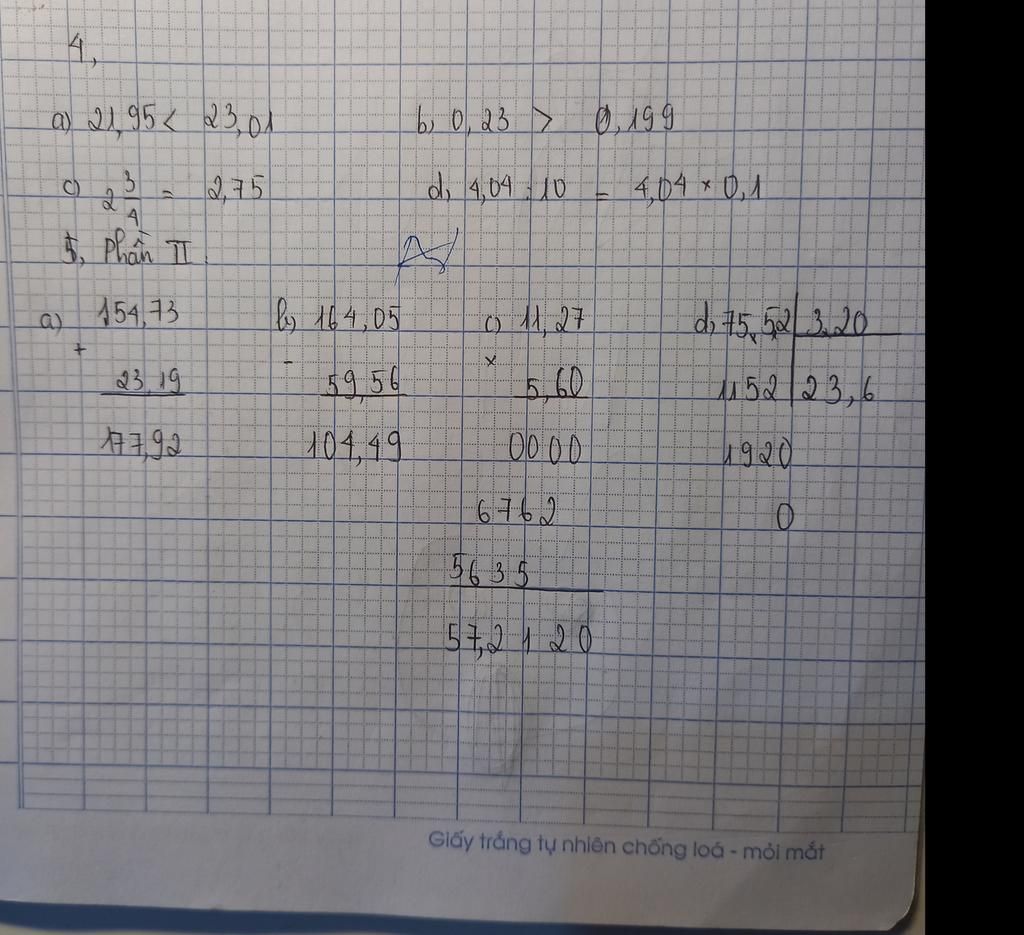 4,
a) 21,95 < 23,01 b, 0,23 > 0,199
c) 2 3/4 = 2,75 d, 4,04 : 10 = 4,04 × 0,1
5, Phần II
a) 154,73 b, 164,05 c) 11,27 d, 75,52 3,20
+ - ×
23,19 59,56 5,60 1152 23,6
177,92 104,49 0000 1920
6762 0
5635
57,2120
Giấy trắng tự nhiên chống loá - mỏi mắt